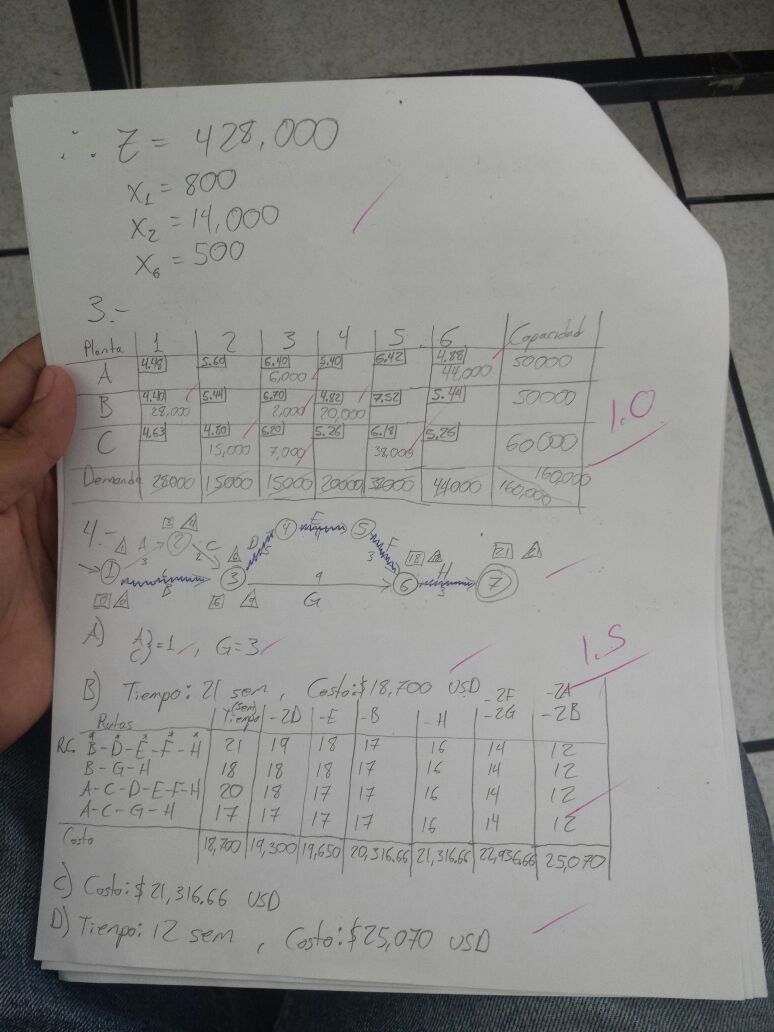 ∴ Z = 428,000
X₁ = 800
X₂ = 14,000
X₆ = 500
3.-
Planta 1 2 3 4 5 6 Capacidad
A 4.48 5.60 6.40 5.40 6.42 4.88 50000
6,000 44,000
B 4.40 5.44 6.70 4.82 7.52 5.44 50000
28,000 2,000 20,000
C 4.63 4.80 6.20 5.26 6.18 5.26 60000
15,000 7,000 38,000
Demanda 28000 15000 15000 20000 38000 44000 160,000 160,000
1.0
4.-
1 A 3 2 C 2 3 D 5 4 E 4 5 F 3 6 H 3 7
6 B
9 G
18 21
A) A}=1, G=3
C}
1.5
B) Tiempo: 21 sem, Costo: $18,700 USD
Rutas Tiempo (sem) -2D -E -B -H -2F -2G -2A -2B
R.C. B-D-E-F-H 21 19 18 17 16 14 12
B-G-H 18 18 18 17 16 14 12
A-C-D-E-F-H 20 18 17 17 16 14 12
A-C-G-H 17 17 17 17 16 14 12
Costo 18,700 19,300 19,650 20,316.66 21,316.66 22,936.66 25,070
C) Costo: $21,316.66 USD
D) Tiempo: 12 sem, Costo: $25,070 USD